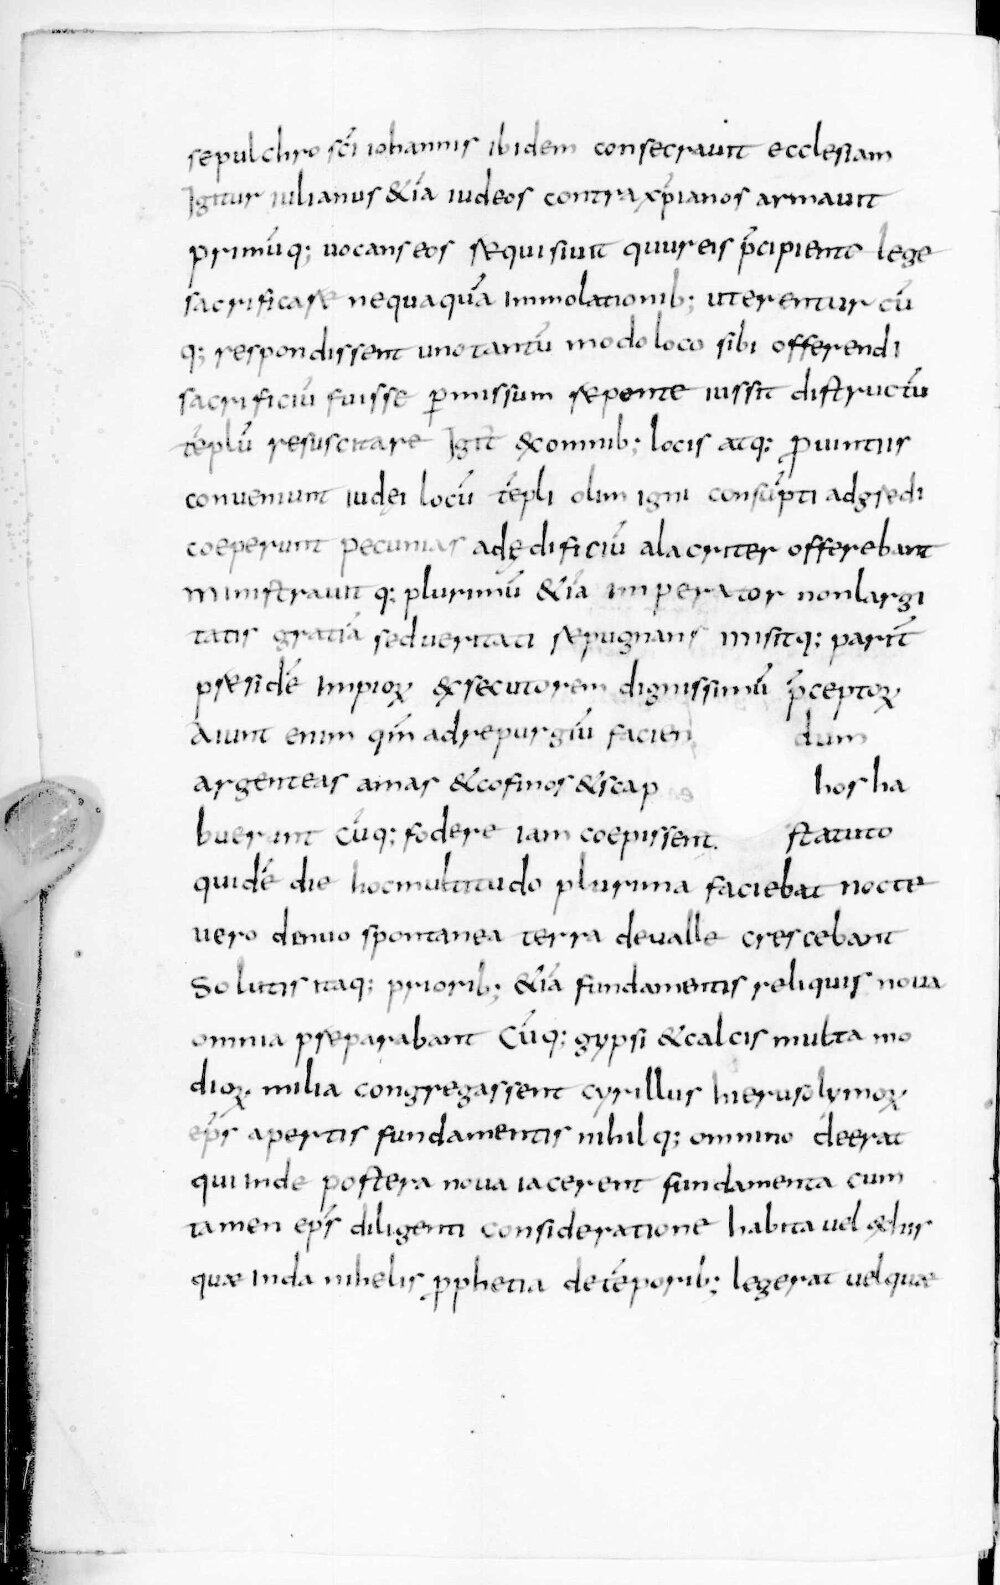 sepulchro sc̄i iohannis ibidem consecrauit ecclesiam
Igitur iulianus &iā iudeos contra xp̄ianos armauit
primūq; uocans eos requisiuit qu ur eis p̄cipiente lege
sacrificare nequaquā immolationib; uterentur cū
q; respondissent uno tantū modo loco sibi offerendi
sacrificiū fuisse ꝑmissum repente iussit distructū
tēplū resuscitare Igit̄ & comnib; locis atq; ꝓuintiis
conueniunt iudęi locū tēpli olim igni consūpti adgredi
coeperunt pecunias adędificiū alacriter offerebant
ministrauit q; plurimū &iā imperator non largi
tatis gratiā sed ueritati repugnans misitq; parit̄
presidē impioꝝ & secutorem dignissimū p̄ceptoꝝ
Aiunt enim qm̄ ad repurgiū facien dum
argenteas amas & cofinos & scap has ha
buerunt Cūq; fodere iam coepissent statuto
quidē die hoc multitudo plurima faciebat nocte
uero denuo spontanea terra de ualle crescebant
Solutis itaq; priorib; &iā fundamentis reliquis noua
omnia preparabant Cūq; gypsi & calcis multa mo
dioꝝ milia congregassent cyrillus hierusolymoꝝ
ep̄s apertis fundamentis nihil q; omnino deerat
qui inde postera noua iacerent fundamenta cum
tamen ep̄s diligenti consideratione habita uel & his
quæ inda nihelis ꝓphetia de tēporib; legerat uel quæ